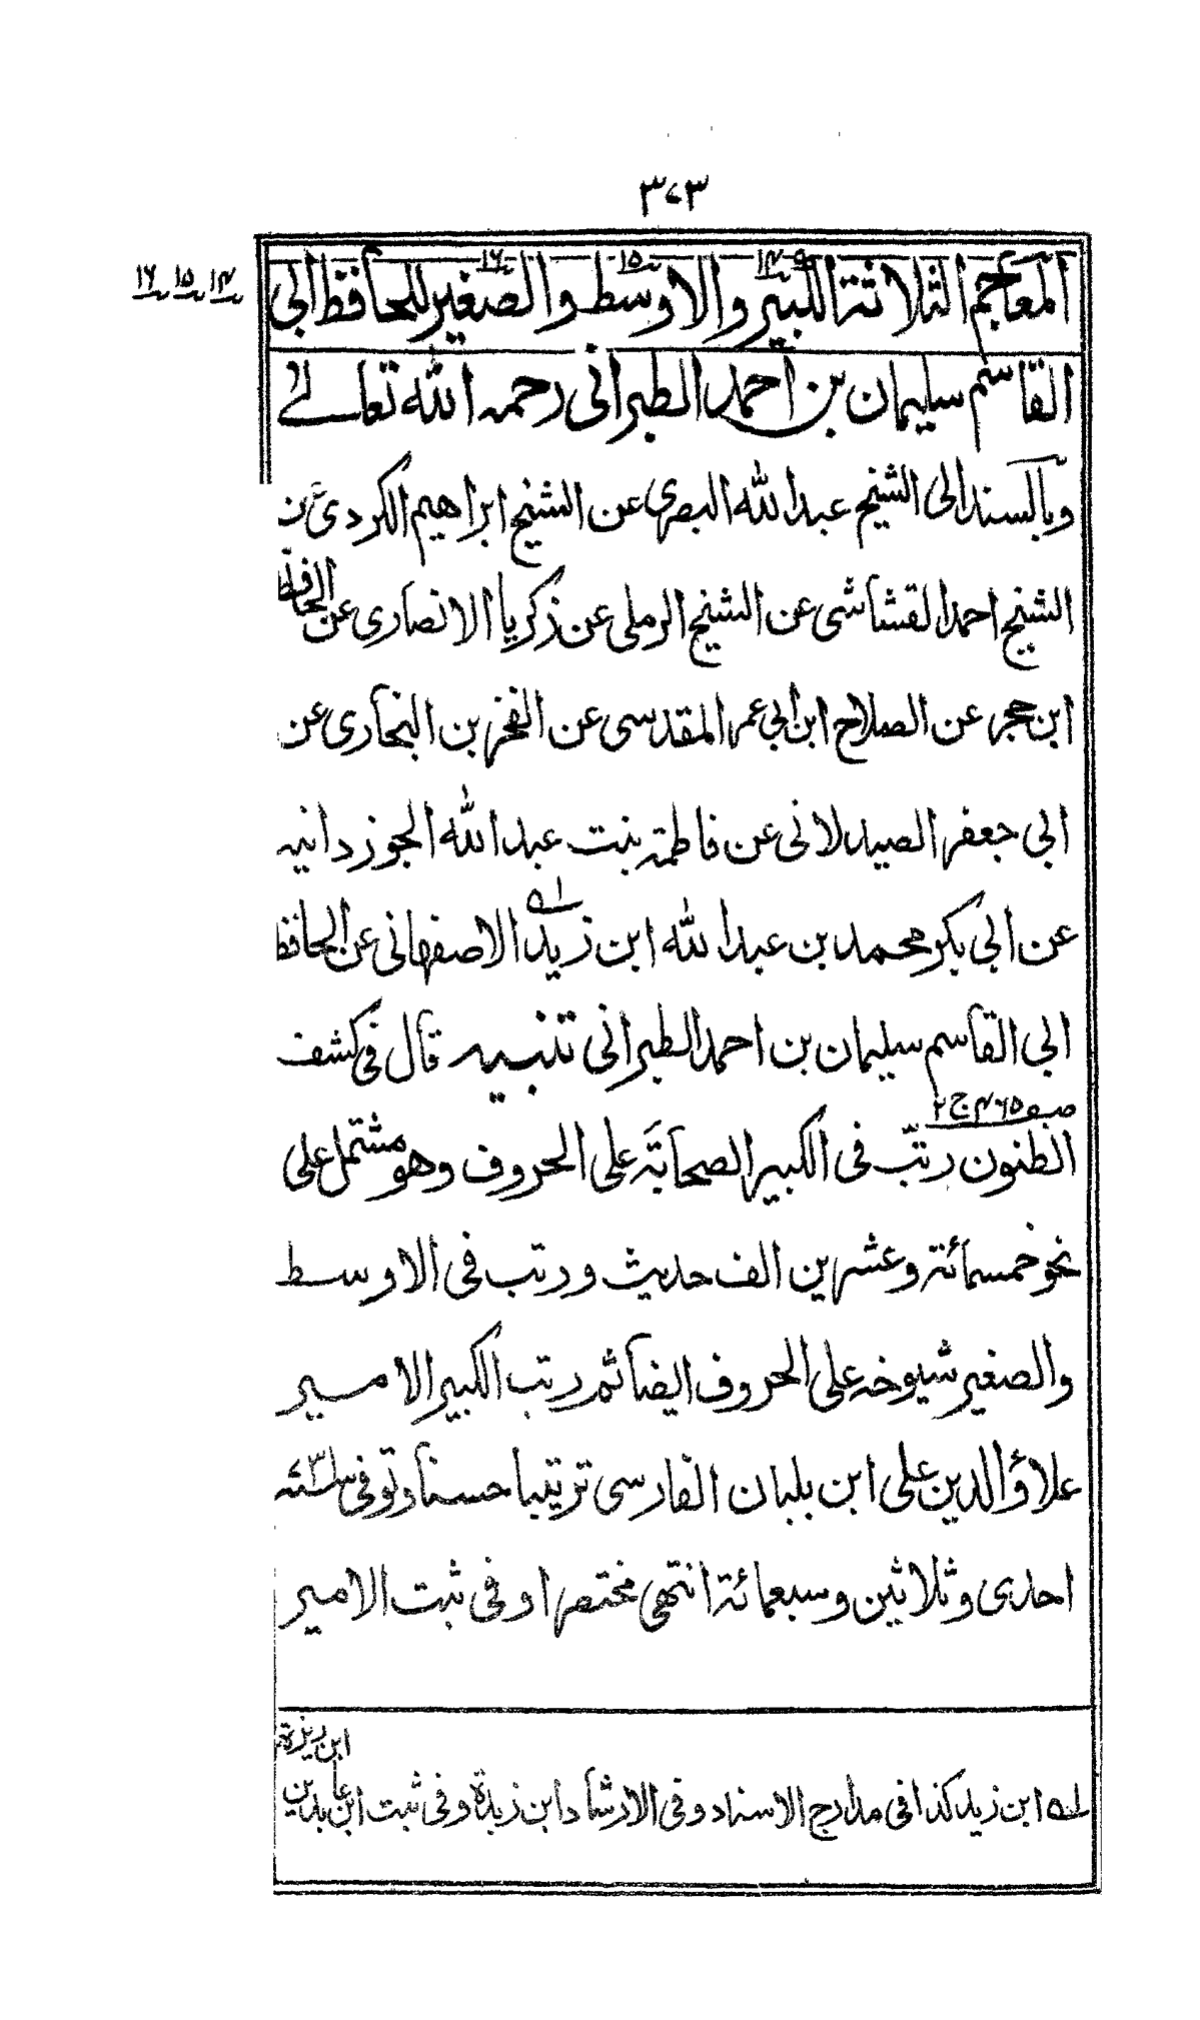 ٣٧٣
١٤ ١٥ ١٦
المعاجم الثلاثة الكبير والاوسط والصغير للحافظ ابى
القاسم سليمان بن احمد الطبرانى رحمه الله تعالے
وبالسند الى الشيخ عبد الله البصرى عن الشيخ ابراهيم الكردى عن
الشيخ احمد القشاشى عن الشيخ الرملى عن زكريا الانصارى عن الحافظ
ابن حجر عن الصلاح ابن ابى عمر المقدسى عن الفخر بن البخارى عن
ابى جعفر الصيدلانى عن فاطمة بنت عبد الله الجوزدانيه
عن ابى بكر محمد بن عبد الله ابن زيد الاصفهانى عن الحافظ
ابى القاسم سليمان بن احمد الطبرانى تنبيه قال فى كشف
صـ ٤٦٥ ج ٢
الظنون رتّب فى الكبير الصحابَة على الحروف وهو مشتمل على
نحو خمسمائة وعشرين الف حديث ورتب فى الاوسط
والصغير شيوخه على الحروف ايضا ثم رتب الكبير الامير
علاؤ الدين على ابن بلبان الفارسى ترتيبا حسنا وتوفى سنة ٧٣١
احدى وثلاثين وسبعمائة انتهى مختصرا وفى ثبت الامير
له ابن زيد كذا فى مدارج الاسناد وفى الارشاد ابن زبدة وفى ثبت ابن عابدين
ابن ريذة